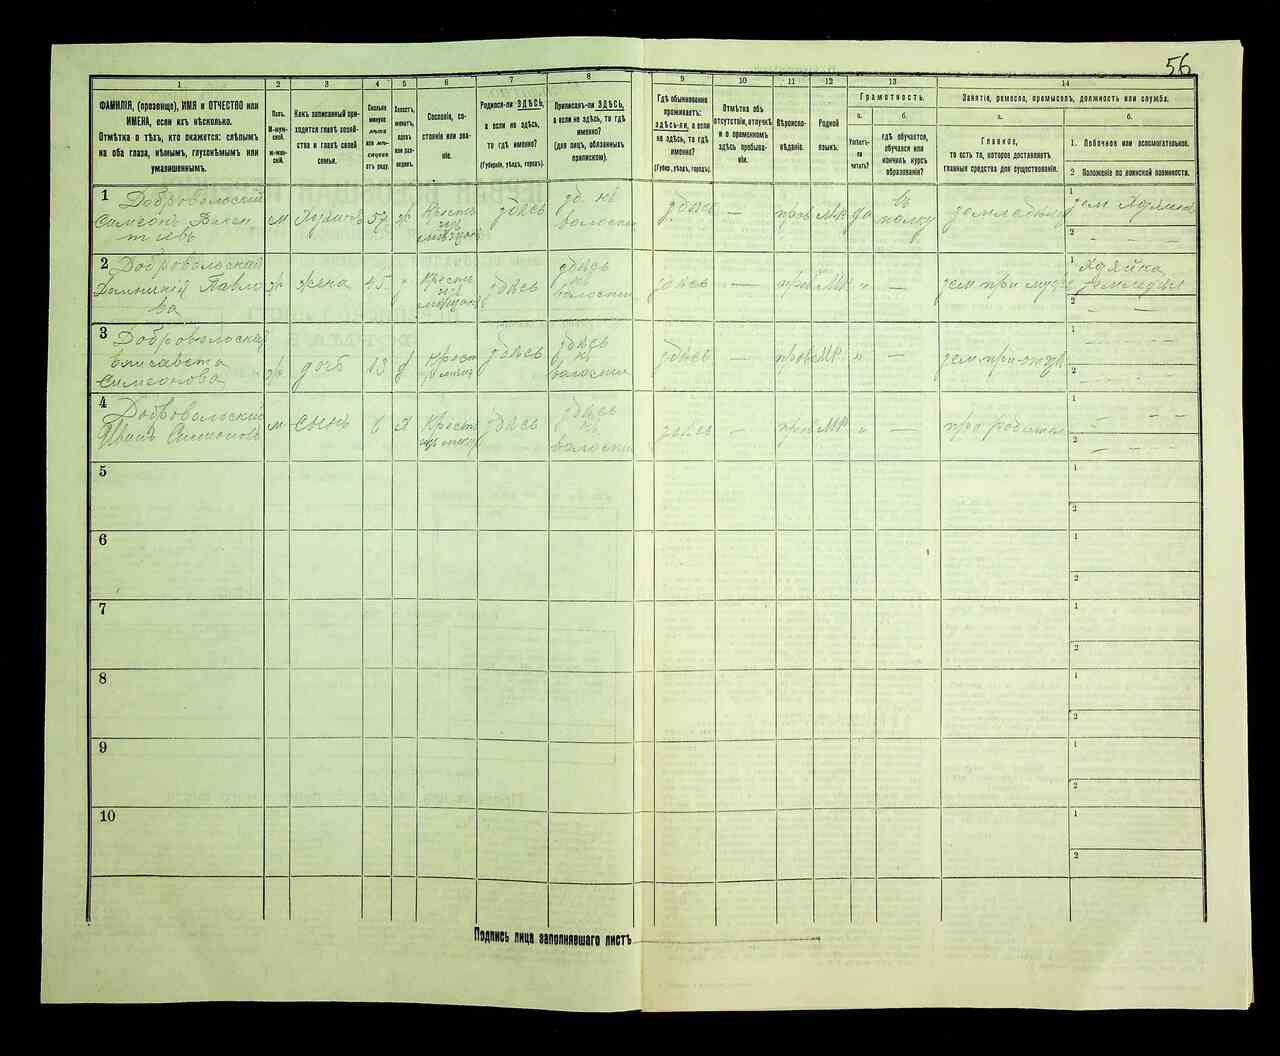 56
1
2
3
4
5
6
7
8
9
10
11
12
13
14
ФАМИЛІЯ, (прозвище), ИМЯ и ОТЧЕСТВО или
ИМЕНА, если ихъ нѣсколько.
Отмѣтка о тѣхъ, кто окажется: слѣпымъ
на оба глаза, нѣмымъ, глухонѣмымъ или
умалишеннымъ.
Полъ.
М-муж-
ской.
Ж-жен-
скій.
Какъ записанный при-
ходится главѣ хозяй-
ства и главѣ своей
семьи.
Сколько
минуло
лѣтъ
или мѣ-
сяцевъ
отъ роду.
Холостъ,
женатъ,
вдовъ
или раз-
веденъ.
Сословіе, со-
стояніе или зва-
ніе.
Родился-ли ЗДѢСЬ,
а если не здѣсь,
то гдѣ именно?
(Губернія, уѣздъ, городъ).
Приписанъ-ли ЗДѢСЬ,
а если не здѣсь, то гдѣ
именно?
(для лицъ, обязанныхъ
припискою).
Гдѣ обыкновенно
проживаетъ:
здѣсь-ли, а если
не здѣсь, то гдѣ
именно?
(Губер., уѣздъ, городъ).
Отмѣтка объ
отсутствіи, отлучкѣ
и о временномъ
здѣсь пребыва-
ніи.
Вѣроиспо-
вѣданіе.
Родной
языкъ.
Грамотность.
а.
Умѣетъ-
ли
читать?
б.
гдѣ обучается,
обучался или
кончилъ курсъ
образованія?
Занятіе, ремесло, промыселъ, должность или служба.
а.
Главное,
то есть то, которое доставляетъ
главныя средства для существованія.
б.
1. Побочное или вспомогательное.
2 Положеніе по воинской повинности.
1
Добровольскій
Симеонъ Викен
тіевъ
м
Хозяинъ
57
ж
Крестъ
изъ
здѣсь
зд. къ
волости
здѣсь
—
прав
МР
да
въ
полку
земледѣліе
1
2
— —
2
Добровольскій
Павло
ва
ж
жена
45
Крестъ
изъ
здѣсь
здѣсь
къ
волости
здѣсь
—
МР
"
—
зем при мужѣ
1
Хозяйка
2
3
Добровольский
Елисавета
Симеонова
ж
дочь
13
Крест
здѣсь
здѣсь
къ
волости
здѣсь
—
прав
МР
"
—
зем при отцѣ
1
— —
2
— —
4
Добровольскій
Иванъ Симеоновъ
м
сынъ
6
Крест
здѣсь
здѣсь
къ
волости
здѣсь
—
МР
"
—
при родител
1
— —
2
— —
5
1
2
6
1
2
7
1
2
8
1
2
9
1
2
10
1
2
Подпись лица заполнявшаго листъ